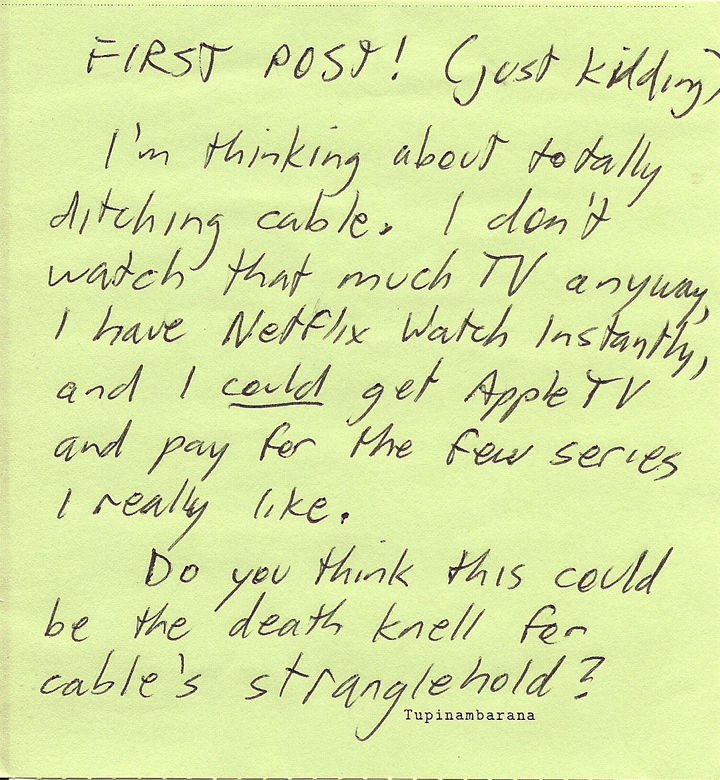 FIRST POST! (just kidding)
I'm thinking about totally
ditching cable. I don't
watch that much TV anyway,
I have Netflix Watch Instantly,
and I could get Apple TV
and pay for the few series
I really like.
Do you think this could
be the death knell for
cable's stranglehold?
Tupinambarana